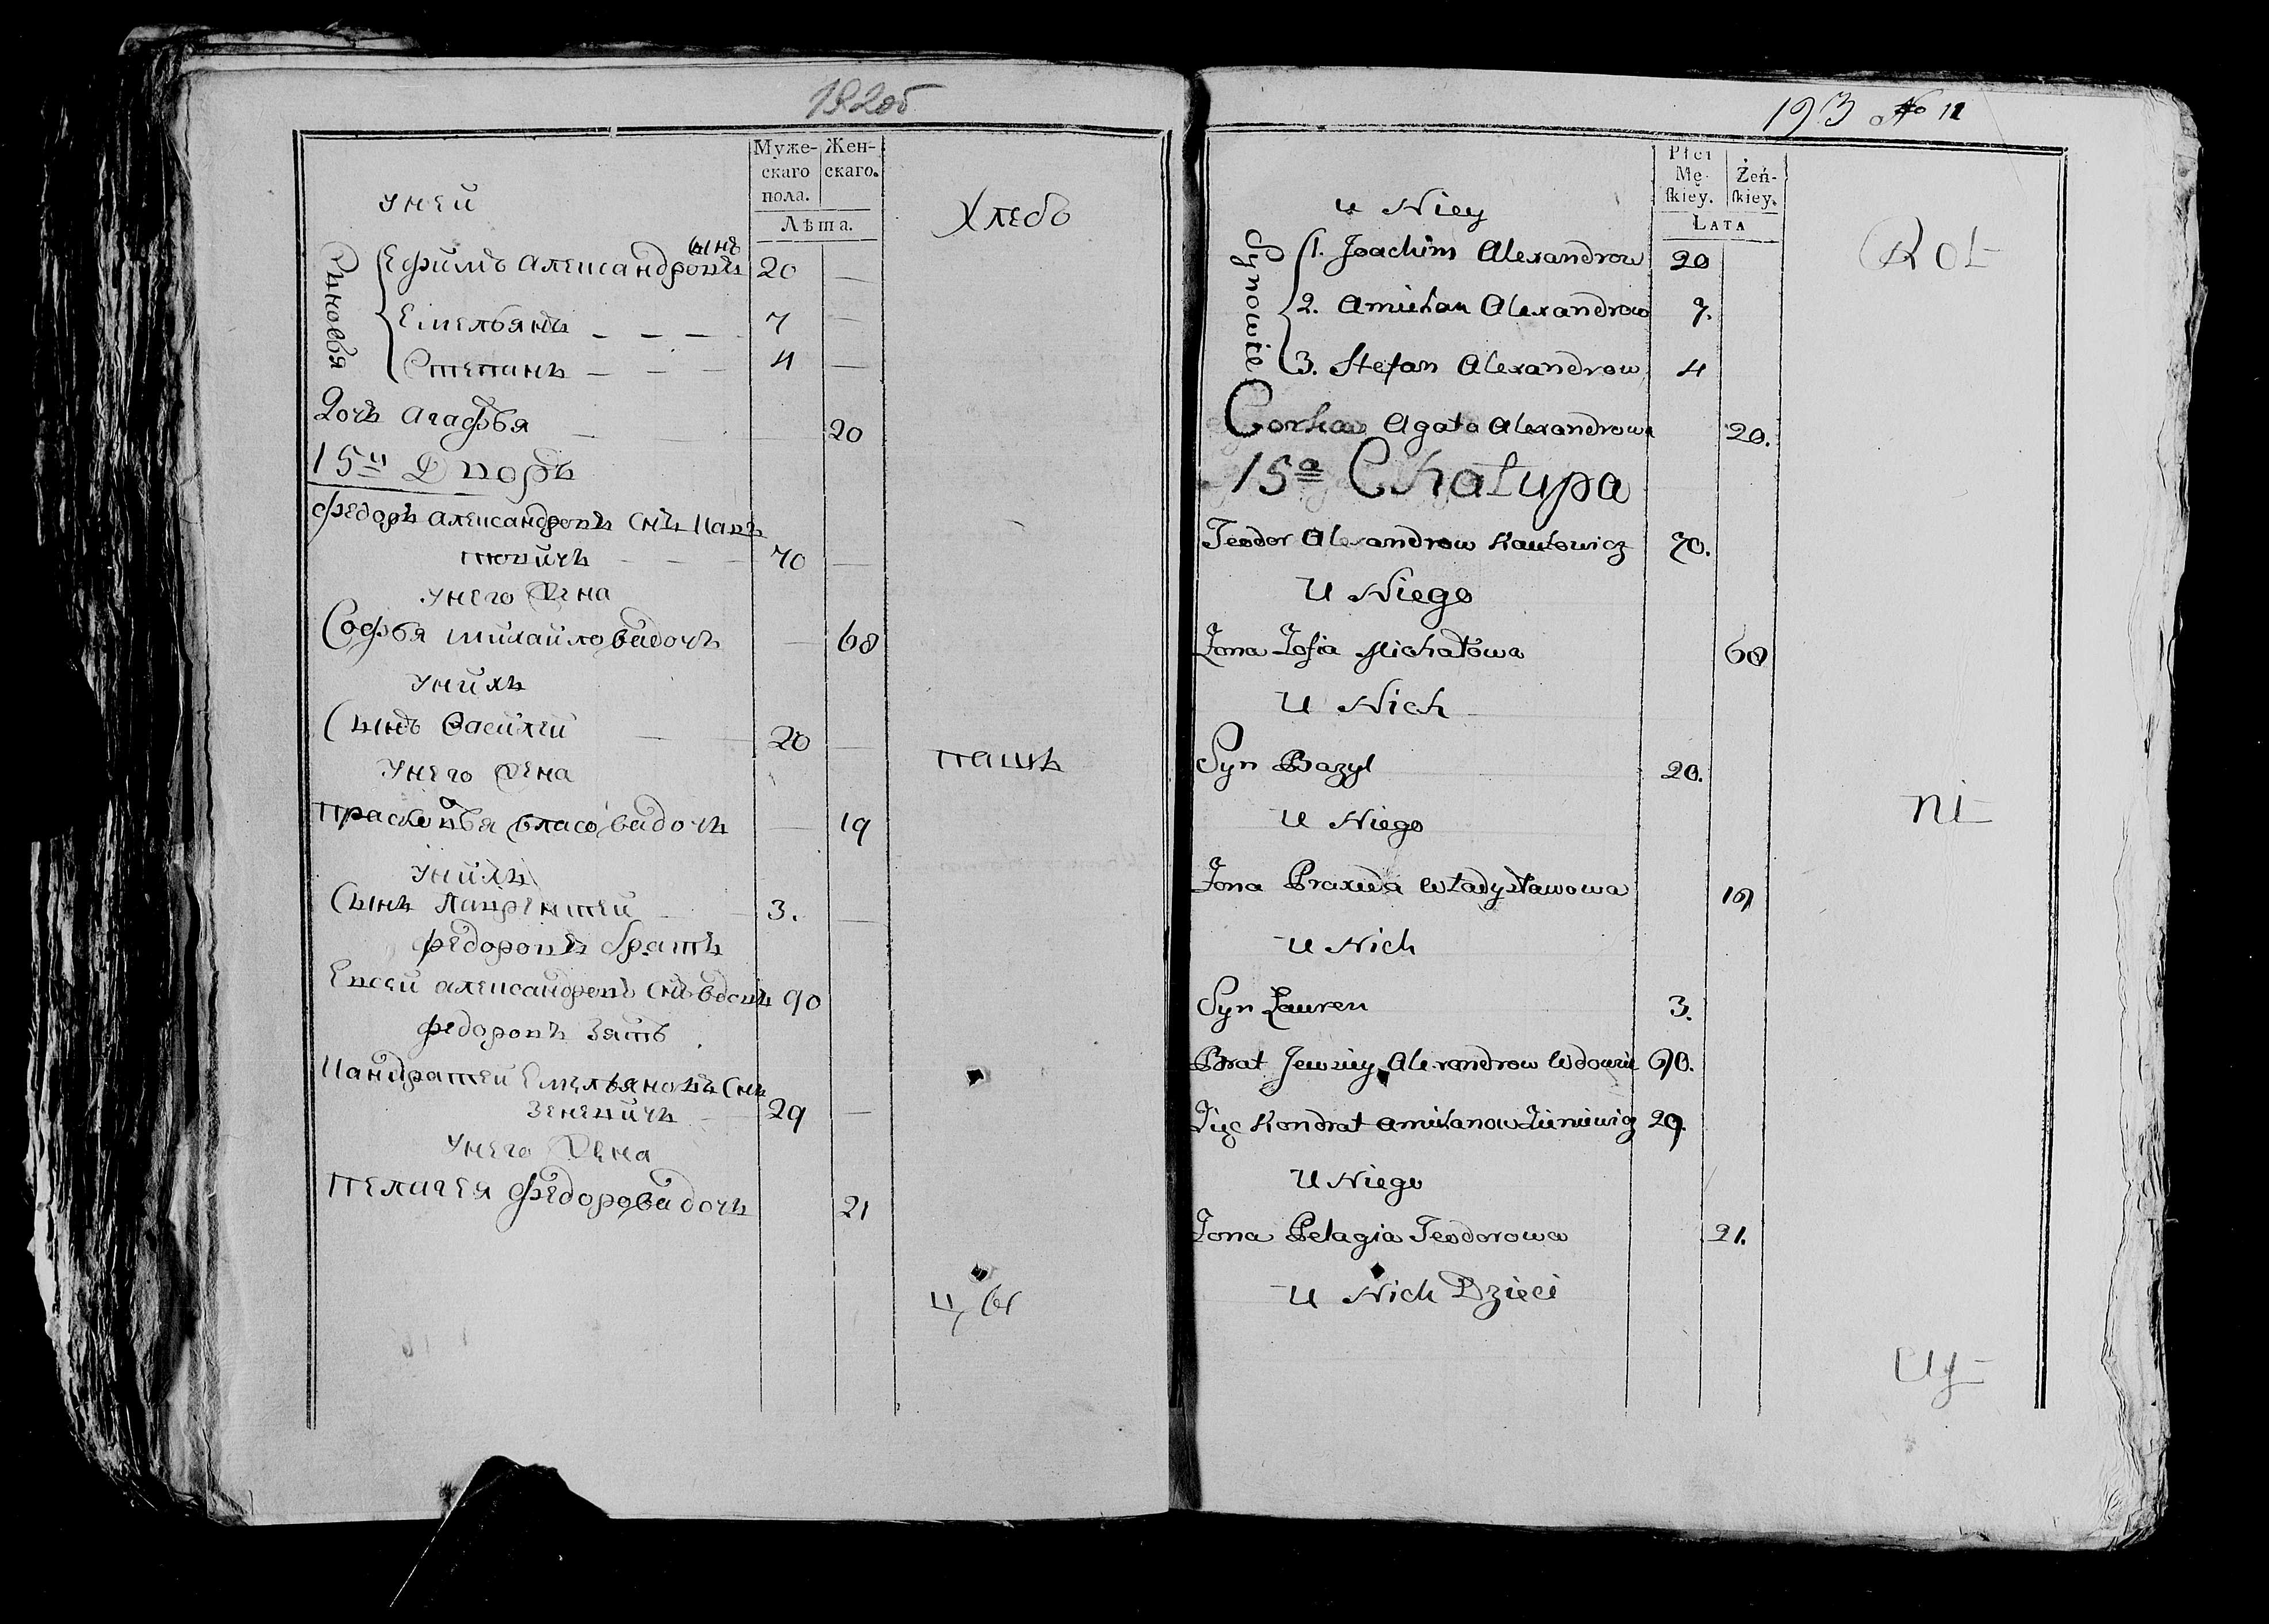 192об
Муже-
скаго
пола.
Жен-
скаго.
Лѣта.
Унеи
Хлебо
Сыновья
Ефимъ Александровъ сынъ 20 —
Емельянъ — — — 7 —
Степанъ — — — 4 —
Дочь Агафья — 20
15й Дворъ
Федоръ Александровъ снъ Кавъ
товичъ — — 70 —
Унего Жена
Софья Михайлова дочь — 68
Унихъ
Сынъ Василей — 20 —
Унего Жена
пашъ
Прасковья Власова дочь — 19
Унихъ
Сынъ Лаврентей — 3. —
Федоровъ братъ
Евсей Александровъ снъ вдовъ 90
Федоровъ Зять
Кандратей Емельяновъ снъ
Зеневичъ — 29 —
Унего Жена
Пелагея Федорова дочь 21
цы
193 No 12
Płci
Mę-
skiey.
Żeń-
skiey.
Lata
u Niey
Rol-
Synowie
1. Joachim Alexandrow 20
2. Amilian Alexandrow 7.
3. Stefan Alexandrow 4
Corka Agata Alexandrowa 20.
15a Chałupa
Teodor Alexandrow Kautowicz 70.
U Niego
Żona Zofia Michałowa 68
U Nich
Syn Bazyl 20.
U Niego
ni-
Żona Praxeda Władysławowa 19
U Nich
Syn Lauren 3.
Brat Jewsiey Alexandrow Wdowiec 90.
Zięć Kondrat Amilianow Zieniewicz 29.
U Niego
Żona Pelagia Teodorowa 21.
U Nich Dzieci
cy-